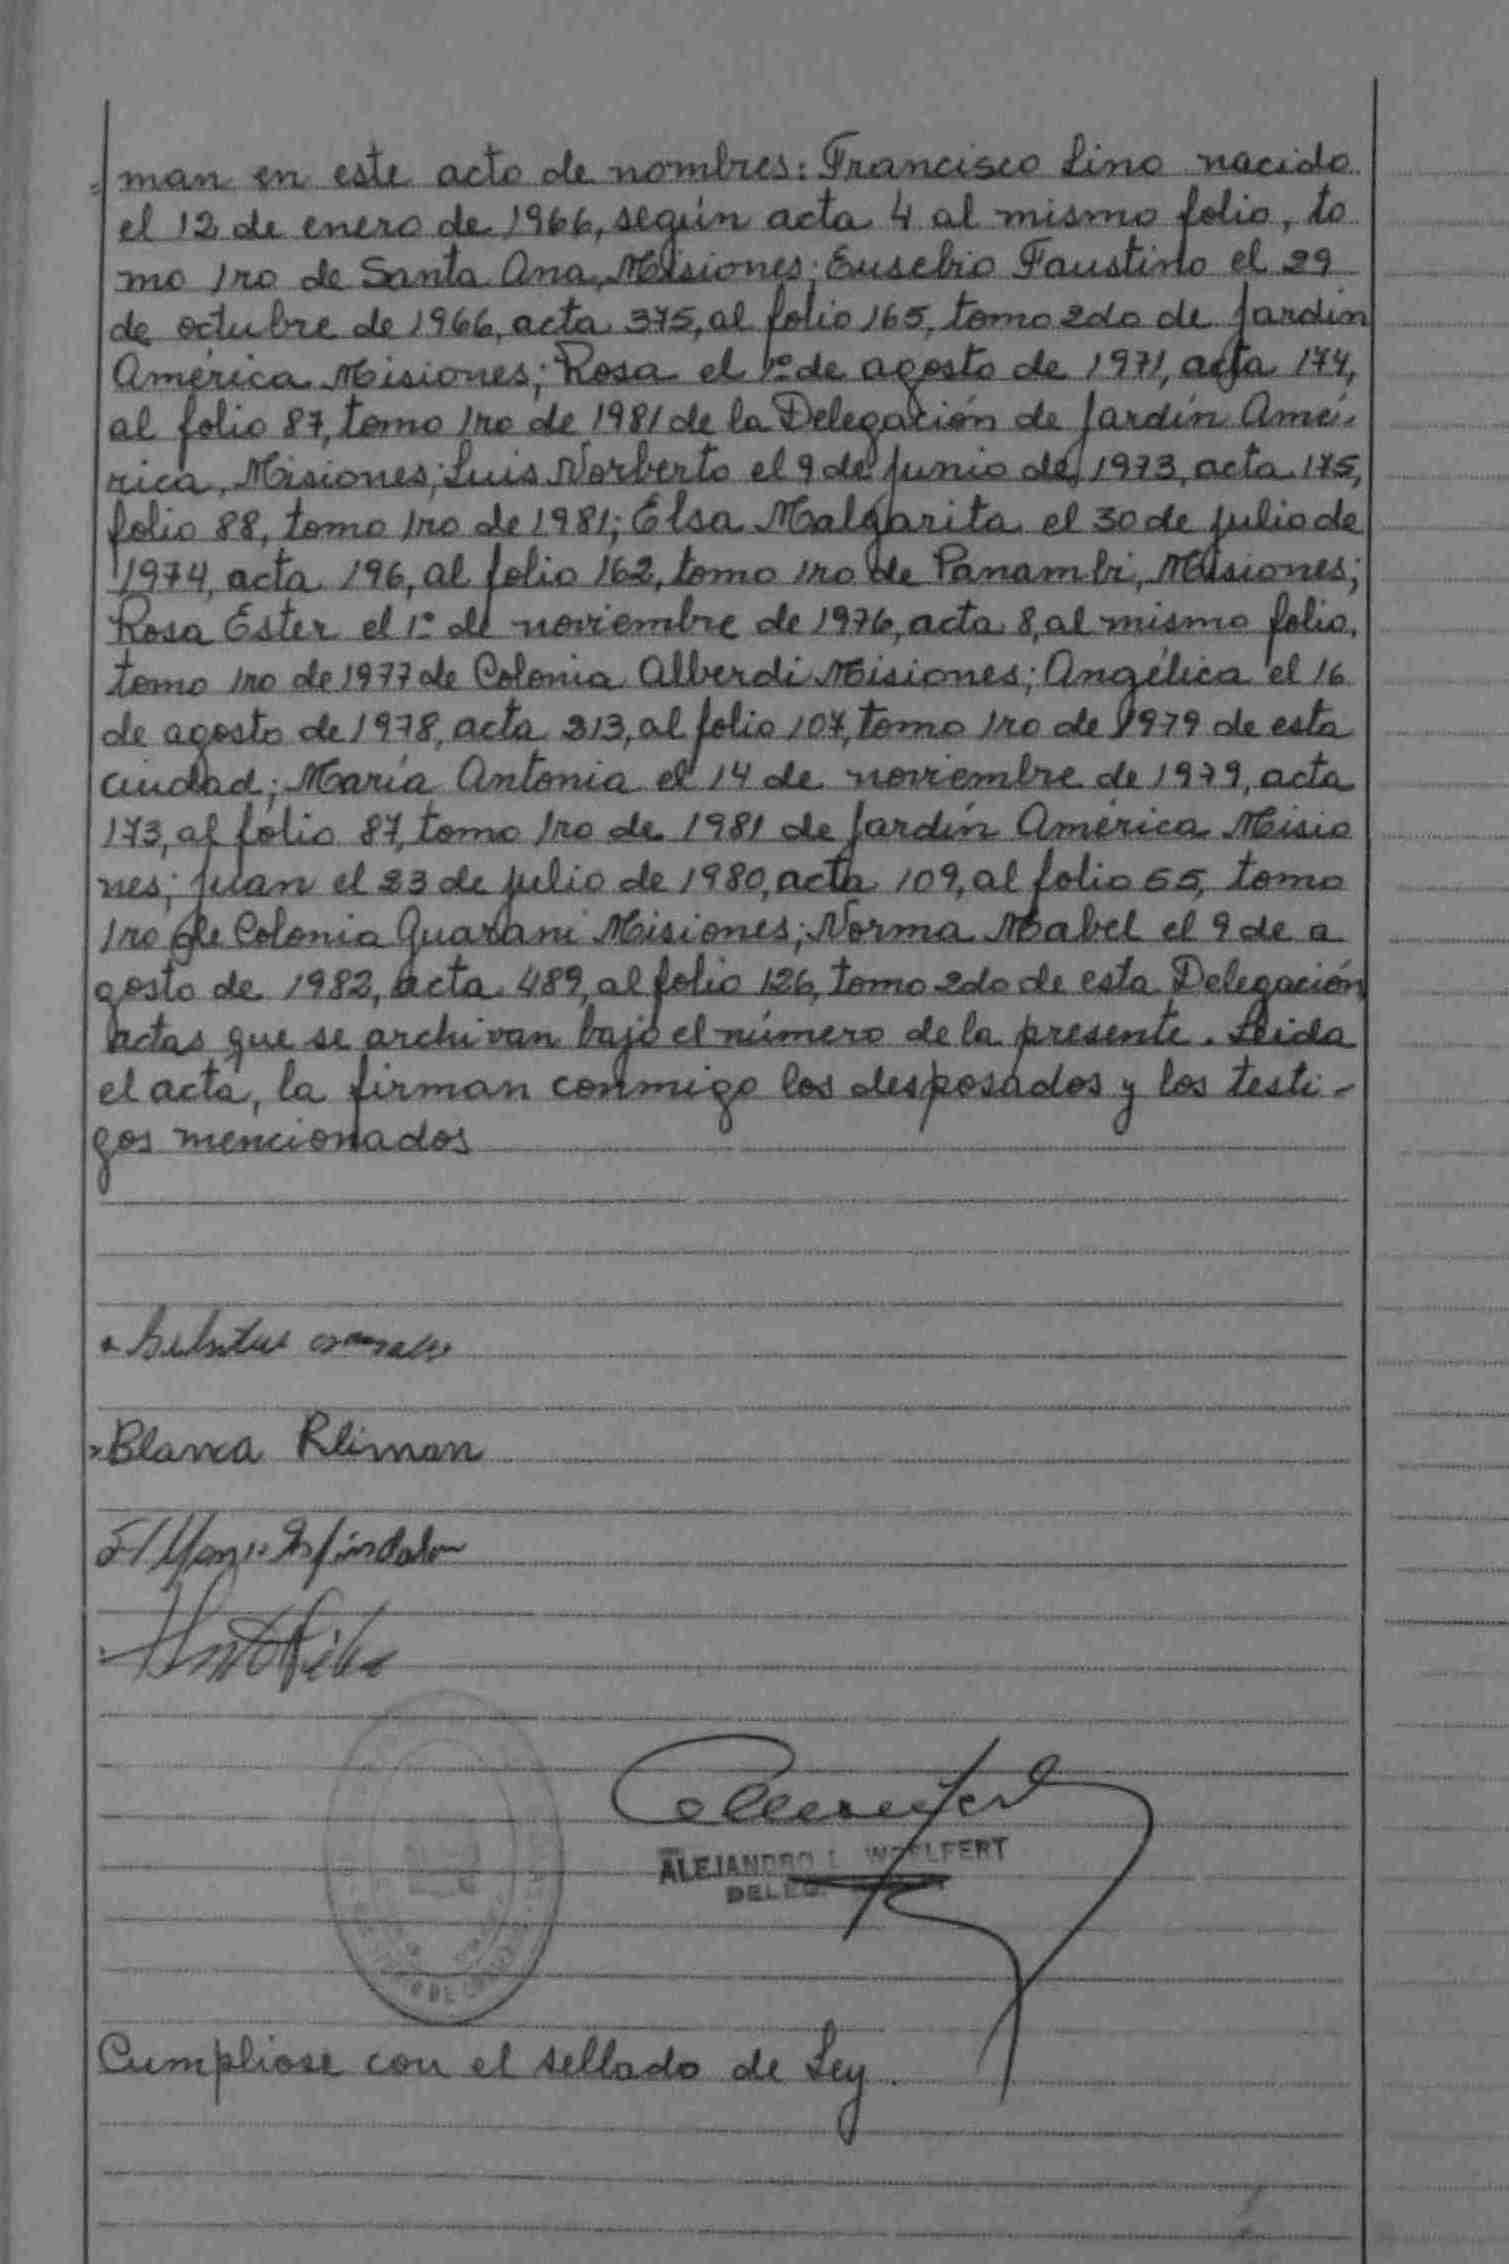 man en este acto de nombres: Francisco Lino nacido
el 12 de enero de 1966, según acta 4 al mismo folio, to
mo 1ro de Santa Ana, Misiones; Eusebio Faustino el 29
de octubre de 1966, acta 375, al folio 165, tomo 2do de Jardín
América Misiones; Rosa el 1º de agosto de 1971, acta 174,
al folio 87, tomo 1ro de 1981 de la Delegación de Jardín Amé-
rica, Misiones; Luis Norberto el 9 de junio de 1973, acta 175,
folio 88, tomo 1ro de 1981; Elsa Malgarita el 30 de julio de
1974, acta 196, al folio 162, tomo 1ro de Panambi, Misiones;
Rosa Ester el 1º de noviembre de 1976, acta 8, al mismo folio,
tomo 1ro de 1977 de Colonia Alberdi Misiones; Angélica el 16
de agosto de 1978, acta 213, al folio 107, tomo 1ro de 1979 de esta
ciudad; María Antonia el 14 de noviembre de 1979, acta
173, al folio 87, tomo 1ro de 1981 de Jardín América Misio
nes; Juan el 23 de julio de 1980, acta 109, al folio 55, tomo
1ro de Colonia Guarani Misiones; Norma Mabel el 9 de a
gosto de 1982, acta 489, al folio 126, tomo 2do de esta Delegación
actas que se archivan bajo el número de la presente. Leida
el acta, la firman conmigo los desposados y los testi-
gos mencionados
Blanca Kliman
ALEJANDRO L. WOELFERT
Cumpliose con el sellado de Ley.